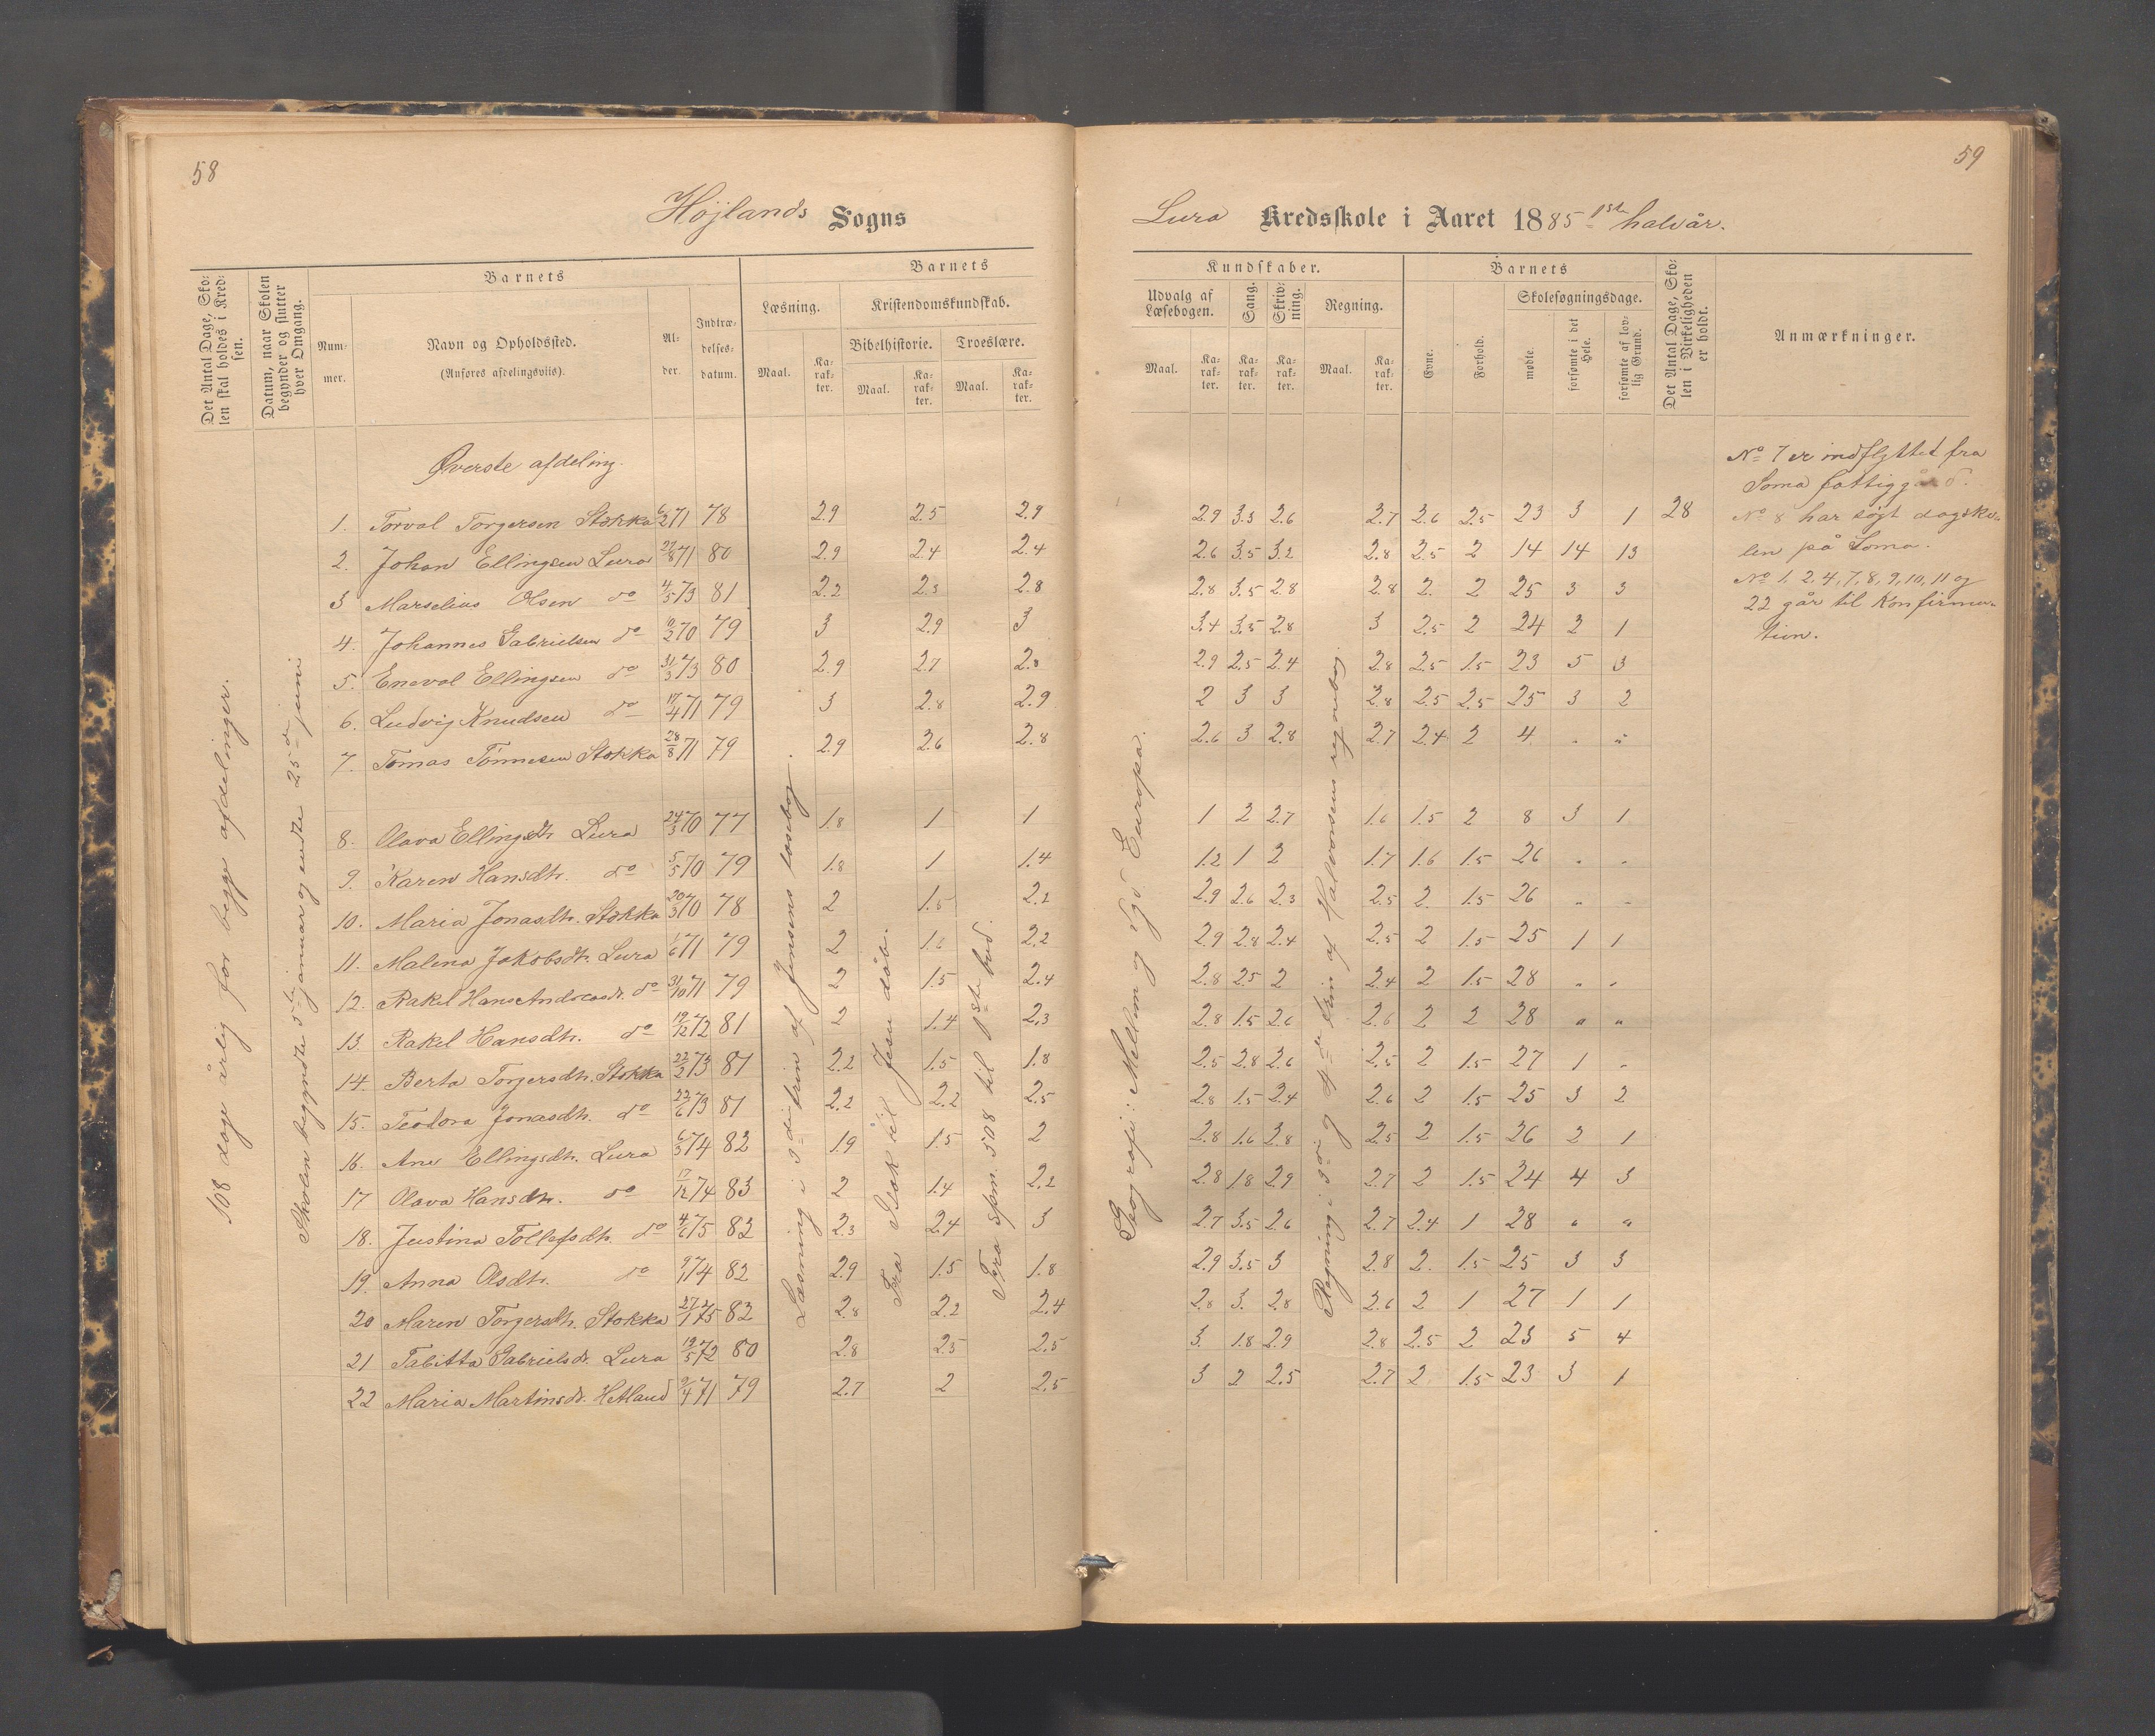 58
59
Højlands Sogns
Lura Kredsskole i Aaret 1885 1ste halvår.
Det Antal Dage, Sko-
len skal holdes i Kred-
sen.
Datum, naar Skolen
begynder og slutter
hver Omgang.
Barnets
Num-
mer.
Navn og Opholdssted.
(Anføres afdelingsviis).
Al-
der.
Indtræ-
delses-
datum.
Barnets
Læsning.
Maal.
Ka-
rak-
ter.
Kristendomskundskab.
Bibelhistorie.
Maal.
Ka-
rak-
ter.
Troeslære.
Maal.
Ka-
rak-
ter.
Kundskaber.
Udvalg af
Læsebogen.
Maal.
Ka-
rak-
ter.
Sang.
Ka-
rak-
ter.
Skriv-
ning.
Ka-
rak-
ter.
Regning.
Maal.
Ka-
rak-
ter.
Barnets
Evne.
Forhold.
Skolesøgningsdage.
mødte.
forsømte i det
Hele.
forsømte af lov-
lig Grund.
Det Antal Dage, Sko-
len i Virkeligheden
er holdt.
Anmærkninger.
108 dage årlig for begge afdelinger.
Skolen begyndte 5te januar og endte 25de juni
Læsning i 3die trin af Jensens læsebog.
Fra Isak til Jesu dåb.
Fra spm. 508 til 1ste bud.
Geografi: Mellem og syd Europa.
Regning i 3die og 4de trin af Halvorsens regnebog.
Øverste afdeling.
1. Torval Torgersen Stokka 6/2 71 78 2.9 2.5 2.9 2.9 3.3 2.6 2.7 2.6 2.5 23 3 1 28
2. Johan Ellingsen Lura 27/8 71 80 2.9 2.4 2.4 2.6 3.5 3.2 2.8 2.5 2 14 14 13
3 Marselius Olsen do 4/5 73 81 2.2 2.3 2.8 2.8 3.5 2.8 2.8 2. 2 25 3 3
4. Johannes Gabrielsen do 70 79 3 2.9 3 3.4 3.5 2.8 3 2.5 2 24 2 1
5. Eneval Ellingsen do 31/3 73 80 2.9 2.7 2.8 2.9 2.5 2.4 2.8 2.5 1.5 23 5 3
6. Ludvig Knudsen do 17/4 71 79 3 2.8 2.9 2 3 3 2.8 2.5 2.5 25 3 2
7. Tomas Tønnesen Stokka 28/8 71 79 2.9 2.6 2.8 2.6 3 2.8 2.7 2.4 2 4 " "
8. Olava Ellingsdtr. Lura 24/3 70 77 1.8 1 1 1 2 2.7 1.6 1.5 2 8 3 1
9. Karen Hansdtr. do 5/5 70 79 1.8 1 1.4 1.2 1 2 1.7 1.6 1.5 26 " "
10. Maria Jonasdtr. Stokka 20/3 70 78 2 1.5 2.2 2.9 2.6 2.3 2.5 2. 1.5 26 " "
11. Malena Jakobsdtr. Lura 1/6 71 79 2 1.6 2.2 2.9 2.8 2.4 2.5 2 1.5 25 1 1
12. Rakel Hans Andreasdr. do 31/10 71 79 2 1.5 2.4 2.8 2.5 2 2.4 2 1.5 28 " "
13. Rakel Hansdtr. do 19/12 72 81 2 1.4 2.3 2.8 1.5 2.6 2.6 2 2 28 " "
14. Berta Torgersdtr. Stokka 22/2 73 81 2.2 1.5 1.8 2.5 2.8 2.6 2.5 2 1.5 27 1 "
15. Teodora Jonasdtr. do 22/6 73 81 2.2 2.2 2.5 2.8 1.5 2.4 2.6 2 1.5 25 3 2
16. Ane Ellingsdtr. Lura 6/3 74 82 1.9 1.5 2 2.8 1.6 2.8 2.5 2 1.5 26 2 1
17 Olava Hansdtr. do 17/12 74 83 2 1.4 2.2 2.8 1.8 2.9 2.7 2 1.5 24 4 3
18. Justina Tollefsdtr. do 4/6 75 82 2.3 2.4 3 2.7 3.5 2.6 2.7 2.4 1 28 " "
19. Anna Olsdtr. do 9/1 74 82 2.9 1.5 1.8 2.9 3.5 3 2.8 2. 1.5 25 3 3
20 Maren Torgersdtr. Stokka 27/1 75 82 2.8 2.2 2.4 2.8 3. 2.8 2.6 2 1 27 1 1
21 Tabitta Gabrielsdr. Lura 19/5 72 80 2.8 2.3 2.5 3. 1.8 2.9 2.8 2.5 2 23 5 4
22 Maria Martinsdr. Hetland 9/4 71 79 2.7 2 2.5 3 2 2.5 2.7 2 1.5 23 3 1
No 7 er indflyttet fra
Soma fattiggård.
No 8 har søgt dagsko-
len på Soma.
No 1, 2, 4, 7, 8, 9, 10, 11 og
22 går til Konfirma-
tion.